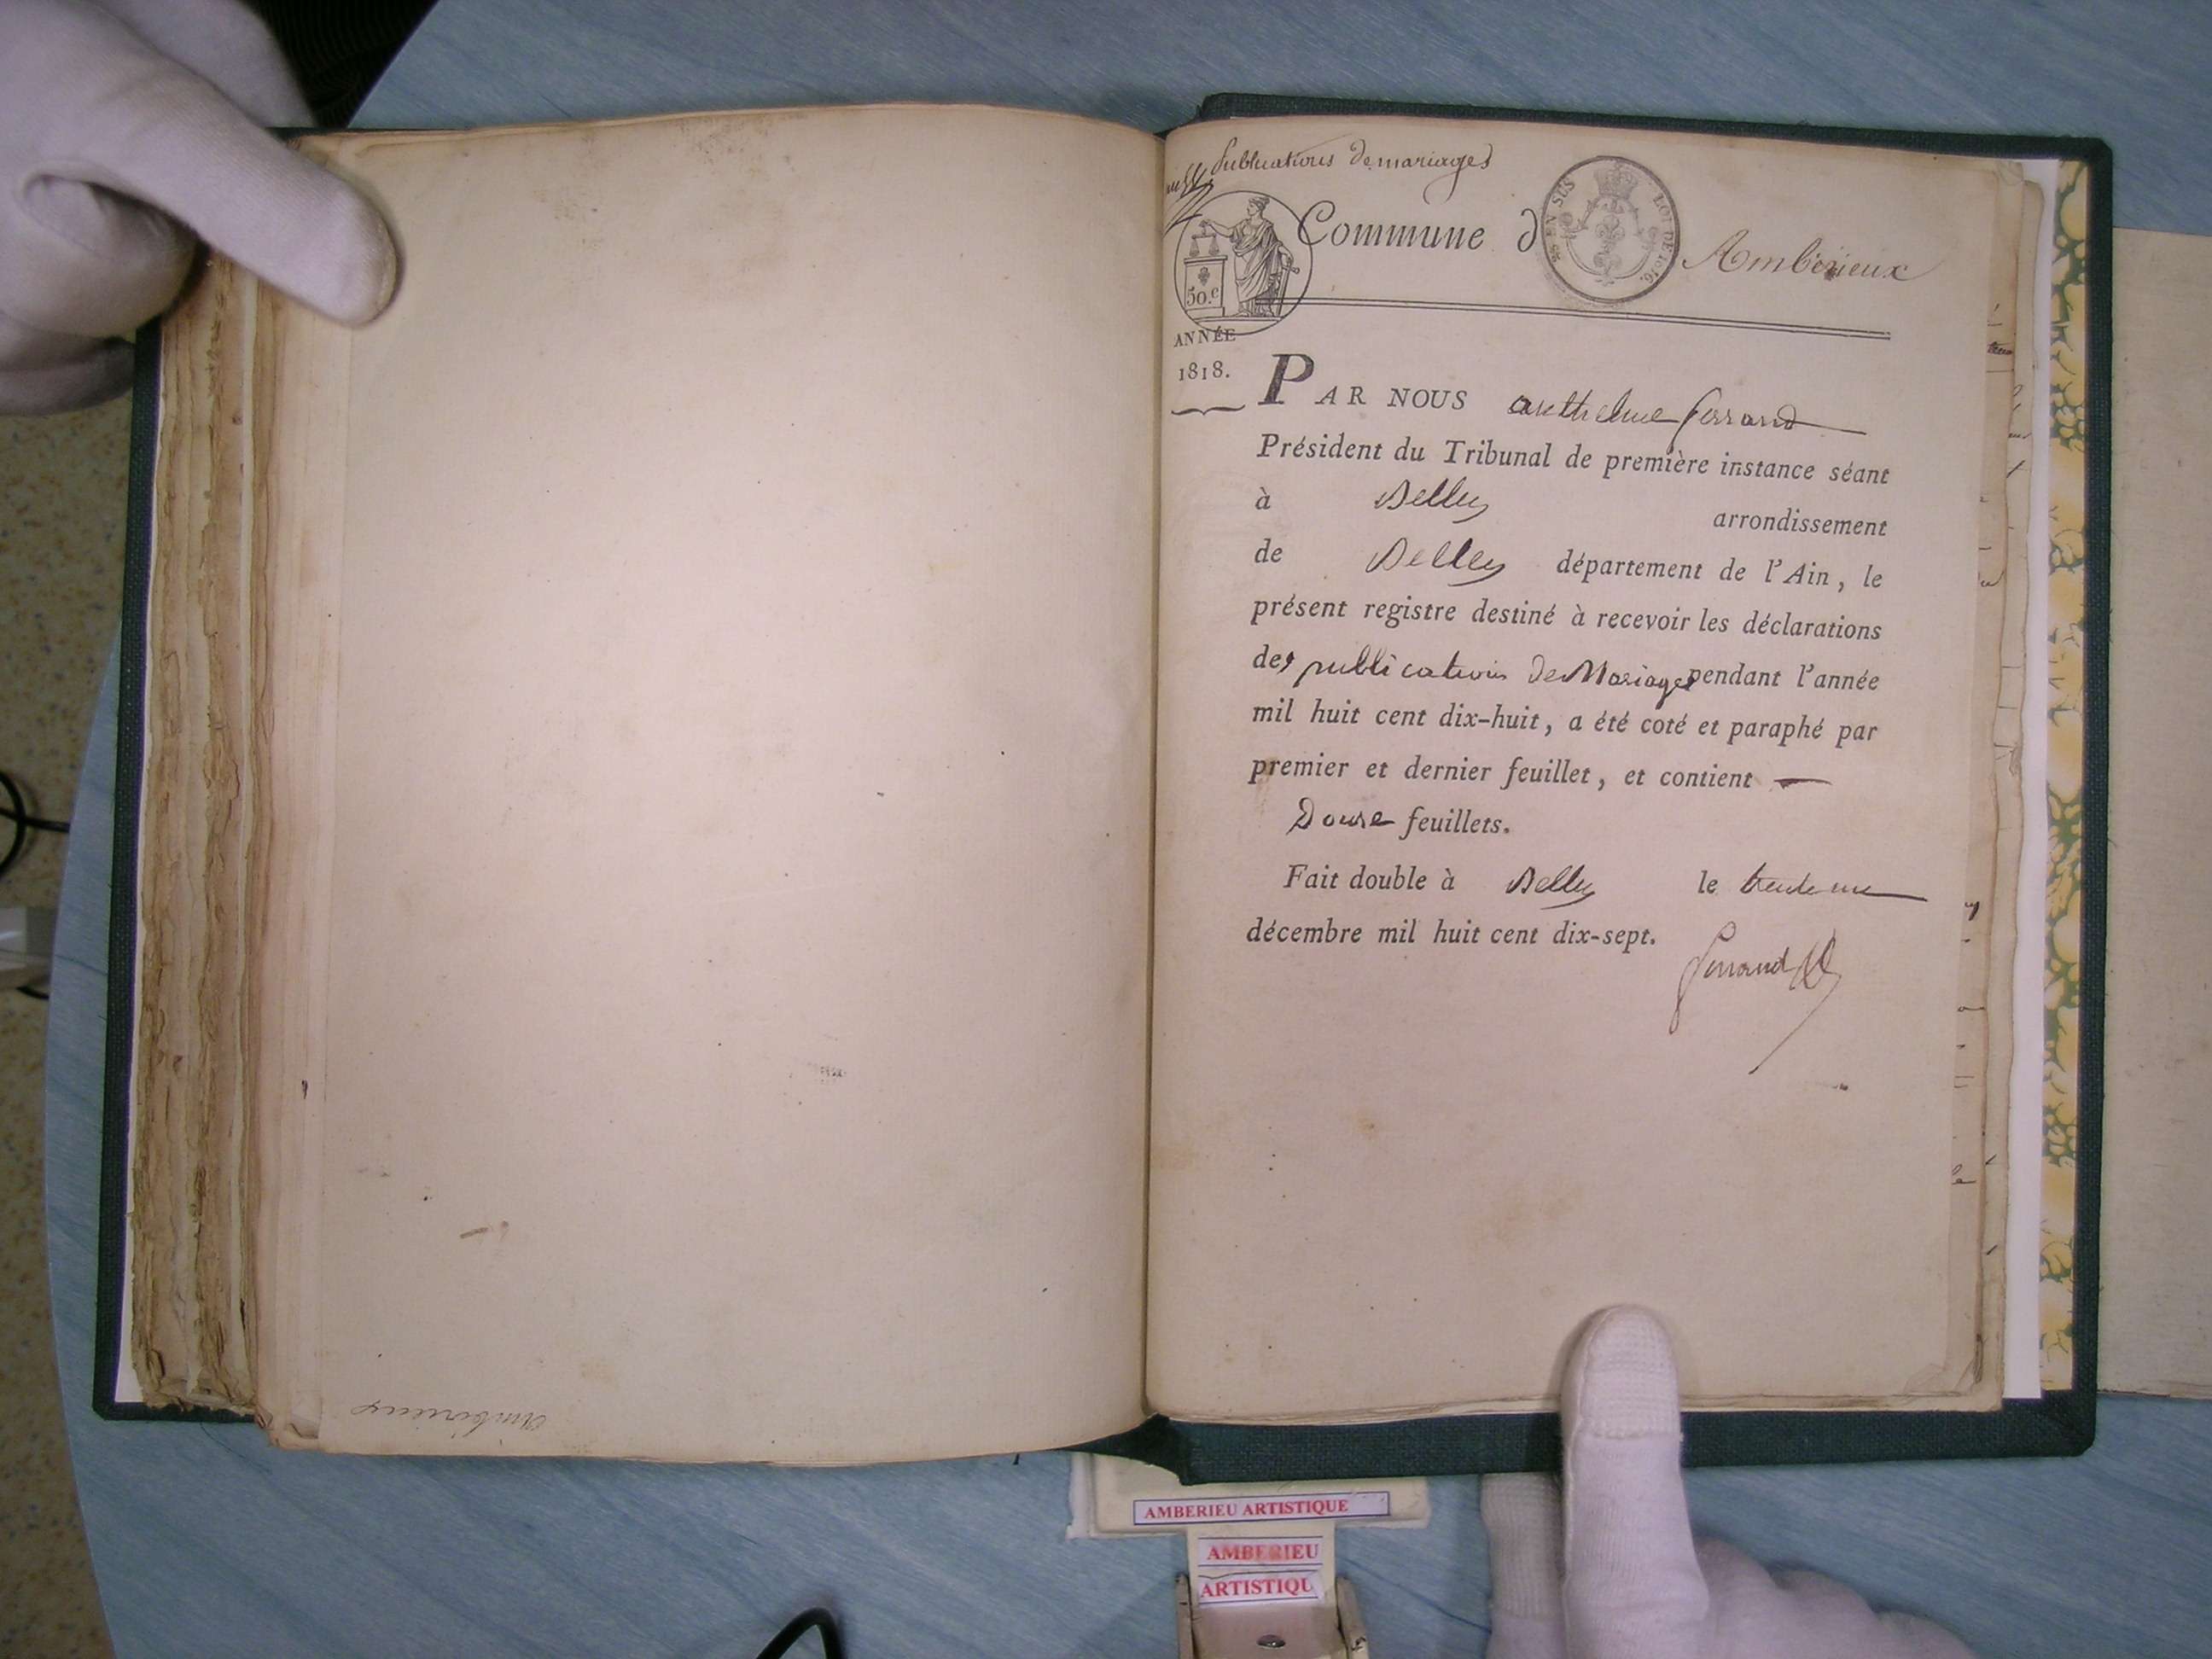 Publications de mariages
Commune d Ambérieux
EN SUS LOI DE 1816.
50.c
ANNÉE
1818.
PAR NOUS anthelme ferrand
Président du Tribunal de première instance séant
à Belley arrondissement
de Belley département de l'Ain, le
présent registre destiné à recevoir les déclarations
des publications de Mariages pendant l'année
mil huit cent dix-huit, a été coté et paraphé par
premier et dernier feuillet, et contient —
Douze feuillets.
Fait double à Belley le trente un
décembre mil huit cent dix-sept.
ferrand
Ambérieux
AMBERIEU ARTISTIQUE
AMBERIEU
ARTISTIQU